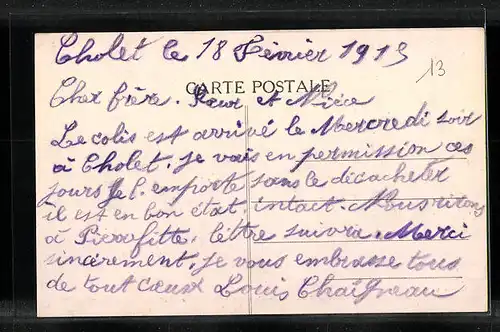 Cholet le 18 Février 1915
13
CARTE POSTALE
Cher frère. Sœur et Nièce
Le colis est arrivé le Mercredi soir
à Cholet. Je vais en permission ces
jours je l'emporte sans le décacheter
il est en bon état, intact. Nous rirons
à Pierrefitte. lettre suivra. Merci
sincèrement. Je vous embrasse tous
de tout cœur Louis Chaigneau